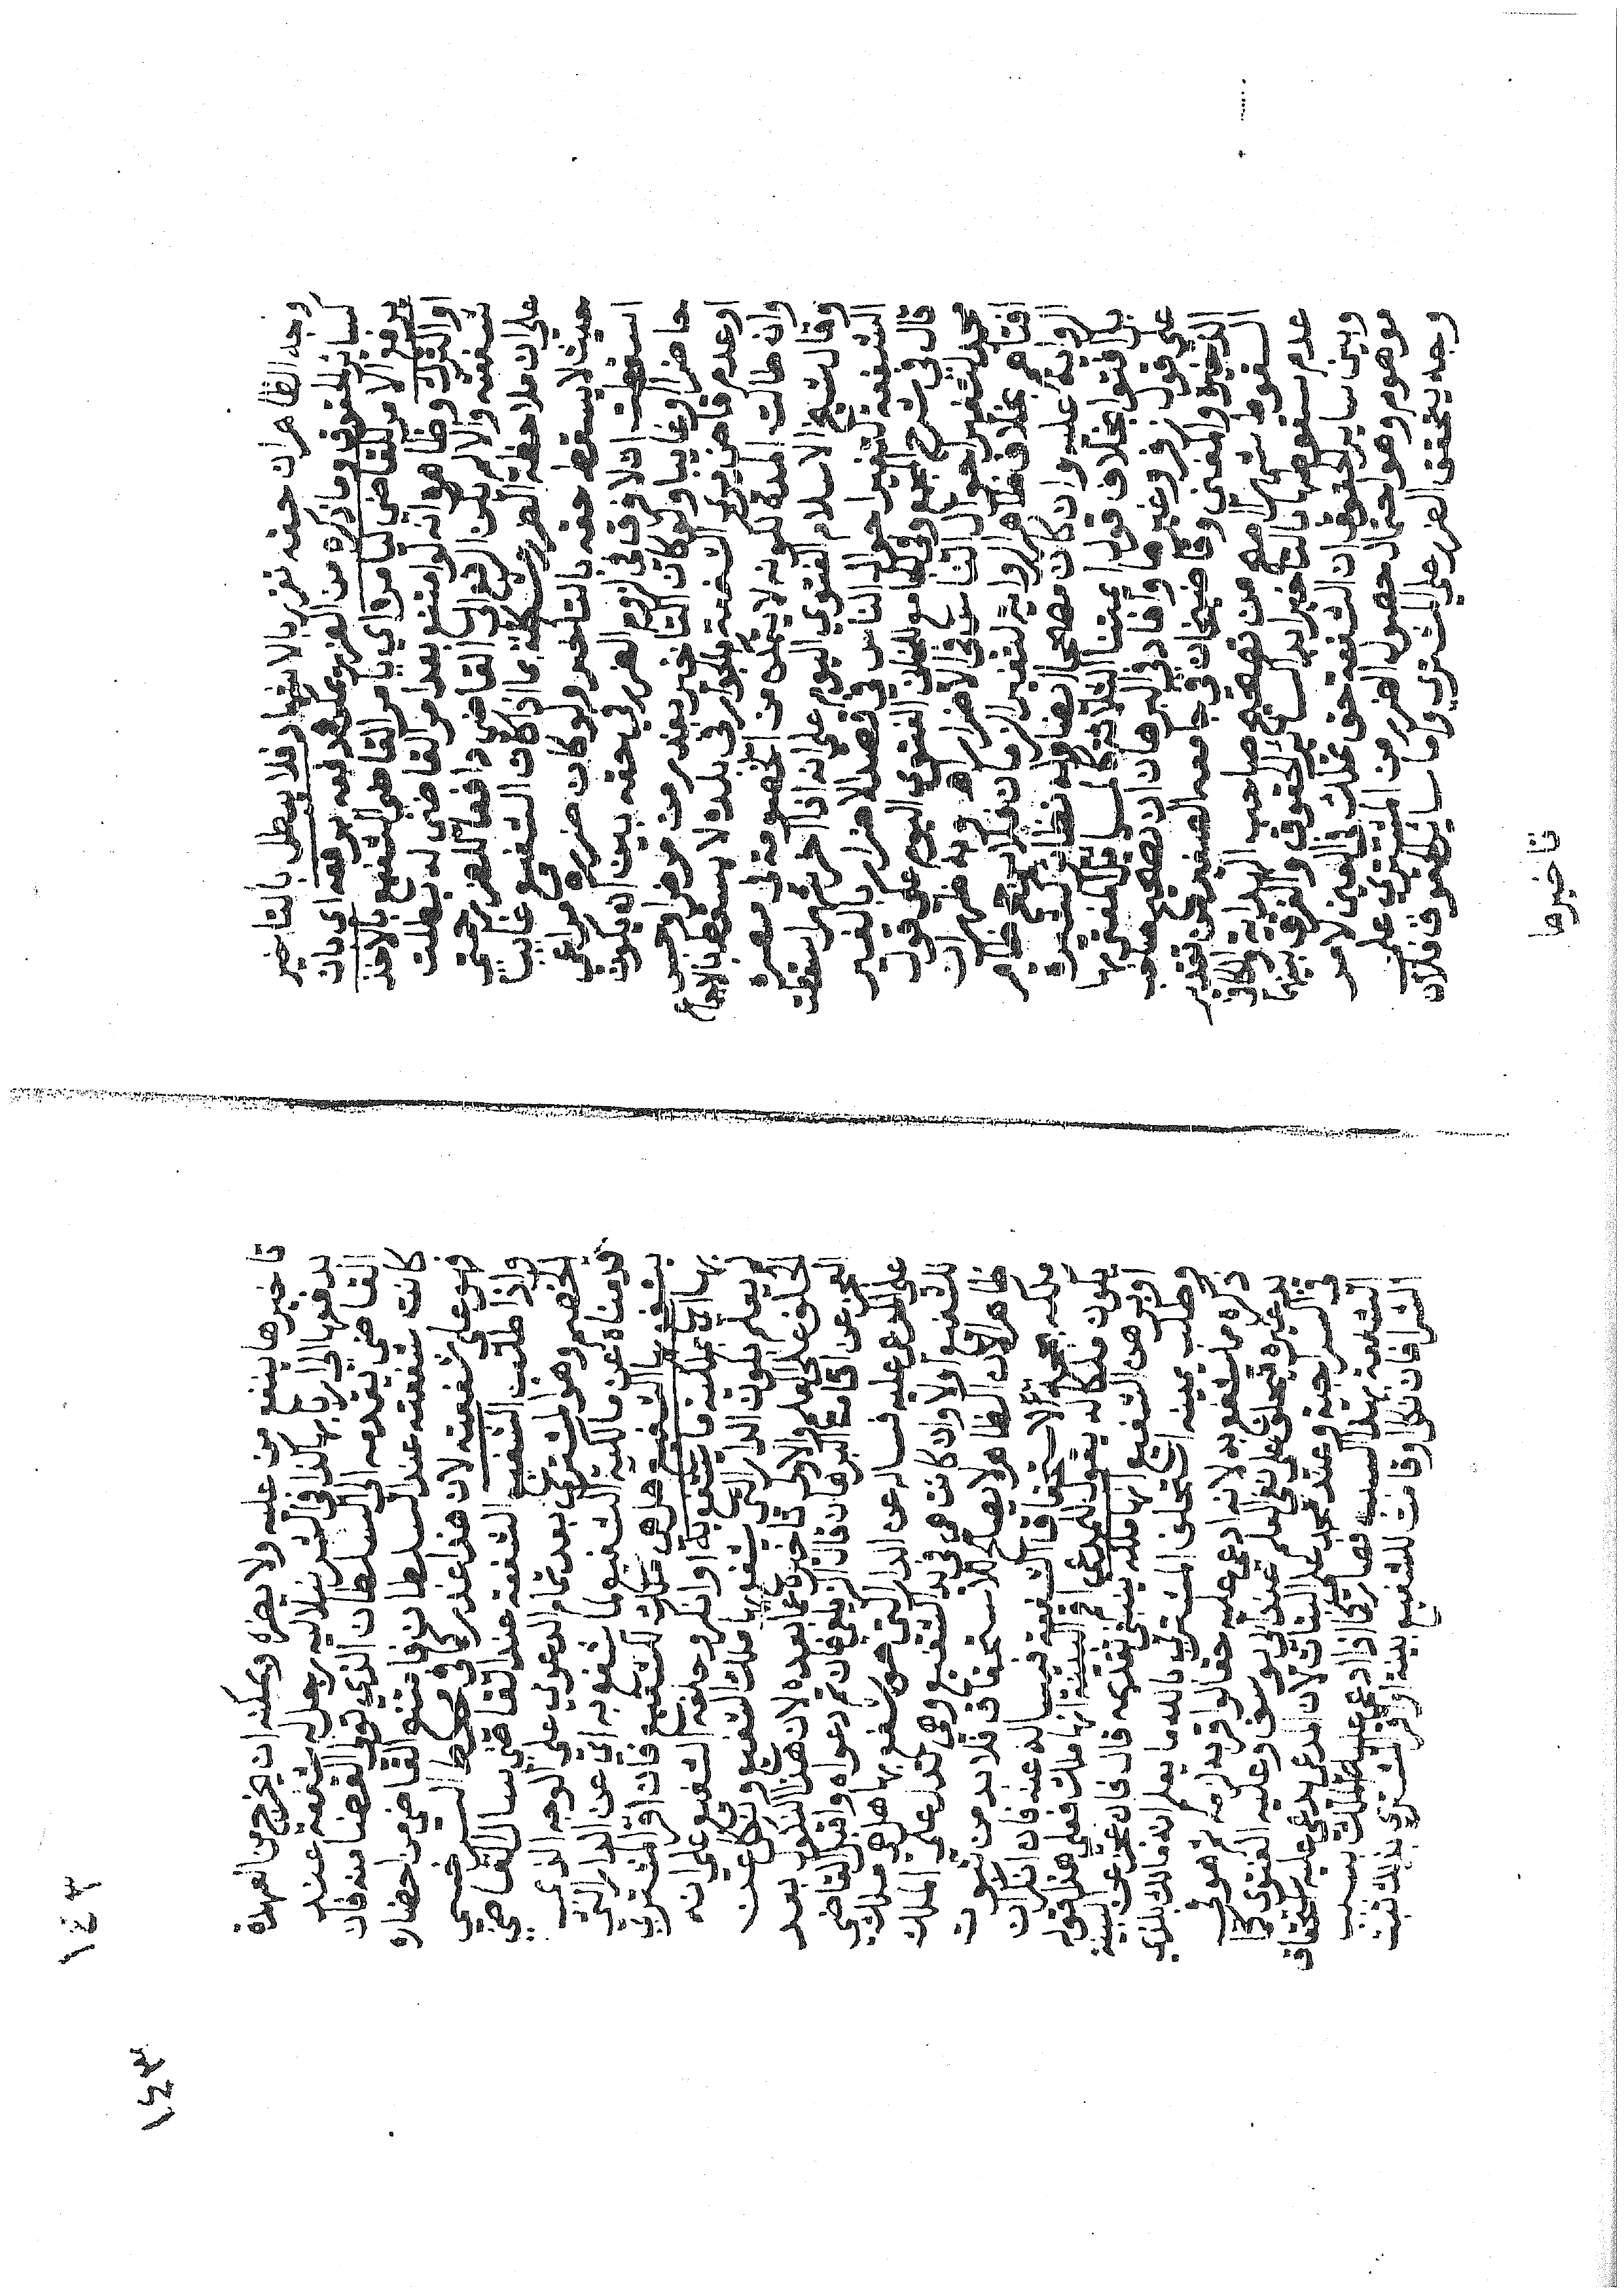 وجه الظاهر ان حقه تقرر بالاشهاد فلا يبطل بالتاخير
كسائر الحقوق وما ذكره من الضرر يمكن دفعه برفعه اي بان
يرفع الامر للقاضي ليامر اي يامر القاضي الشفيع بالاخذ
او الترك وظاهره انه لو امتنع بعد امر القاضي له بطلت
شفعته والا لم يكن الرفع الى القاضي دافعا للضرر حتى
على ان ملاحظة الضرر مشكلة بما اذا كان الشفيع غايبا
حيث لا يسقط حقه بالتاخير ولو كان ضرره مراعى
لسقطت اذ لا فرق في لزوم الضرر في حقه بين ان يكون
حاضرا او غايبا ولو كان التاخير بعذر من مرض او حبس
او عدم قاض يرى الشفعة بالجوار في بلده لا يسقط بالاجماع
وان طالت المدة لكونه لا يتمكن من الخصومة في مصره
وقال شيخ الاسلام الفتوى اليوم على انه اذا اخر شهرا سقطت
الشفعة لتغير احوال الناس في قصد الاضرار بالغير
قال في شرح المجمع وفي الجامع الخاني الفتوى اليوم على قول
محمد لتغير احوال الناس في الاضرار اهـ وبه ظهر ان
افتاءهم بخلاف ظاهر الرواية لتغير الزمان فلا يرجح ظاهر
الرواية عليه وان كان مصححا ايضا وله نظائر كثيرة
بل افتوا بخلاف قول ائمتنا الثلاثة كالمسائل المفتى بها
على قول زفر وغيرها وافاد في البرهان ان تصحيح صاحب
الذخيرة والمغني وقاضيخان في جامعه الصغير من تقدير
السقوط بشهر اصح من تصحيح صاحب الهداية والكافي
عدم سقوطها بالتاخير ابدا كسائر الحقوق والفرق بينها
وبين ساير الحقوق ان الشفعة حق تملك في العين لامر
موهوم وهو احتمال حصول الضرر من المشتري على
وجه يتحقق الضرر على المشتري واما سائر الحقوق فلان
تاخيرها
تاخيرها ينفع من عليه ولا يضره ويمكنه ان يخرج من العهدة
بدفعها الى اربابها كذا في الشرنبلالية رجل له شفعة عند
القاضي يقدمه الى السلطان الذي تولى القضا منه فان
كانت شفعته عند السلطان فامتنع القاضي من احضاره
فهو على شفعته لان هذا عذر كما في محيط السرخسي
واذا طلب الشفيع الشفعة عند القاضي سال القاضي
الخصم وهو المشتري بعد تمام الدعوى على الوجه الذي
قدمناه عن مالكية الشفيع لما شفع به اي عن الدار التي
يشفع بها الشفيع هل هي ملك الشفيع فان اقر المشتري
بها اي بملكية ما يشفع به او انكر وحلفه الشفيع على انه
لم يعلم بكون الدار التي شفع بها ملك الشفيع ونكل عن
الحلف على العلم والاولى تاخيره عما بعده لان هذا النكول بعد
العجز عن اقامة البرهان قال الزيلعي فان تم دعواه واقبل القاضي
على المدعى عليه فساله عن الدار التي شفع بها هل هي ملك
للشفيع او لا وان كانت هي في يد الشفيع وهي تدل على الملك
ظاهرا لان الظاهر لا يصلح للاستحقاق فلا بد من ثبوت
ملكه بحجة لاستحقاق الشفعة فيساله عنه فان انكر ان
يكون ملكا له يقول للمدعي اقم البينة انها ملكك فعلى هذا قوله
او برهن الشفيع انها ملكه ينبغي تقديمه قال فان عجز عن البينة
وطلب يمينه استحلف المشتري بالله ما يعلم انه مالك للذي
ذكره مما يشفع به لانه ادعى عليه حقا لو اقر به لزمه ثم هو في
يد غيره فيحلف على نفي العلم عند ابي يوسف وعليه الفتوى كما
في السراجية وعند محمد على البتات لان المدعي يدعي عليه استحقاق
الشفعة بهذا السبب فصار كما اذا ادعى عليه الملك بسبب
الشرا فان نكل او قامت للشفيع بينة او اقر المشتري بذلك ثبت
١٤٣
١٤٣